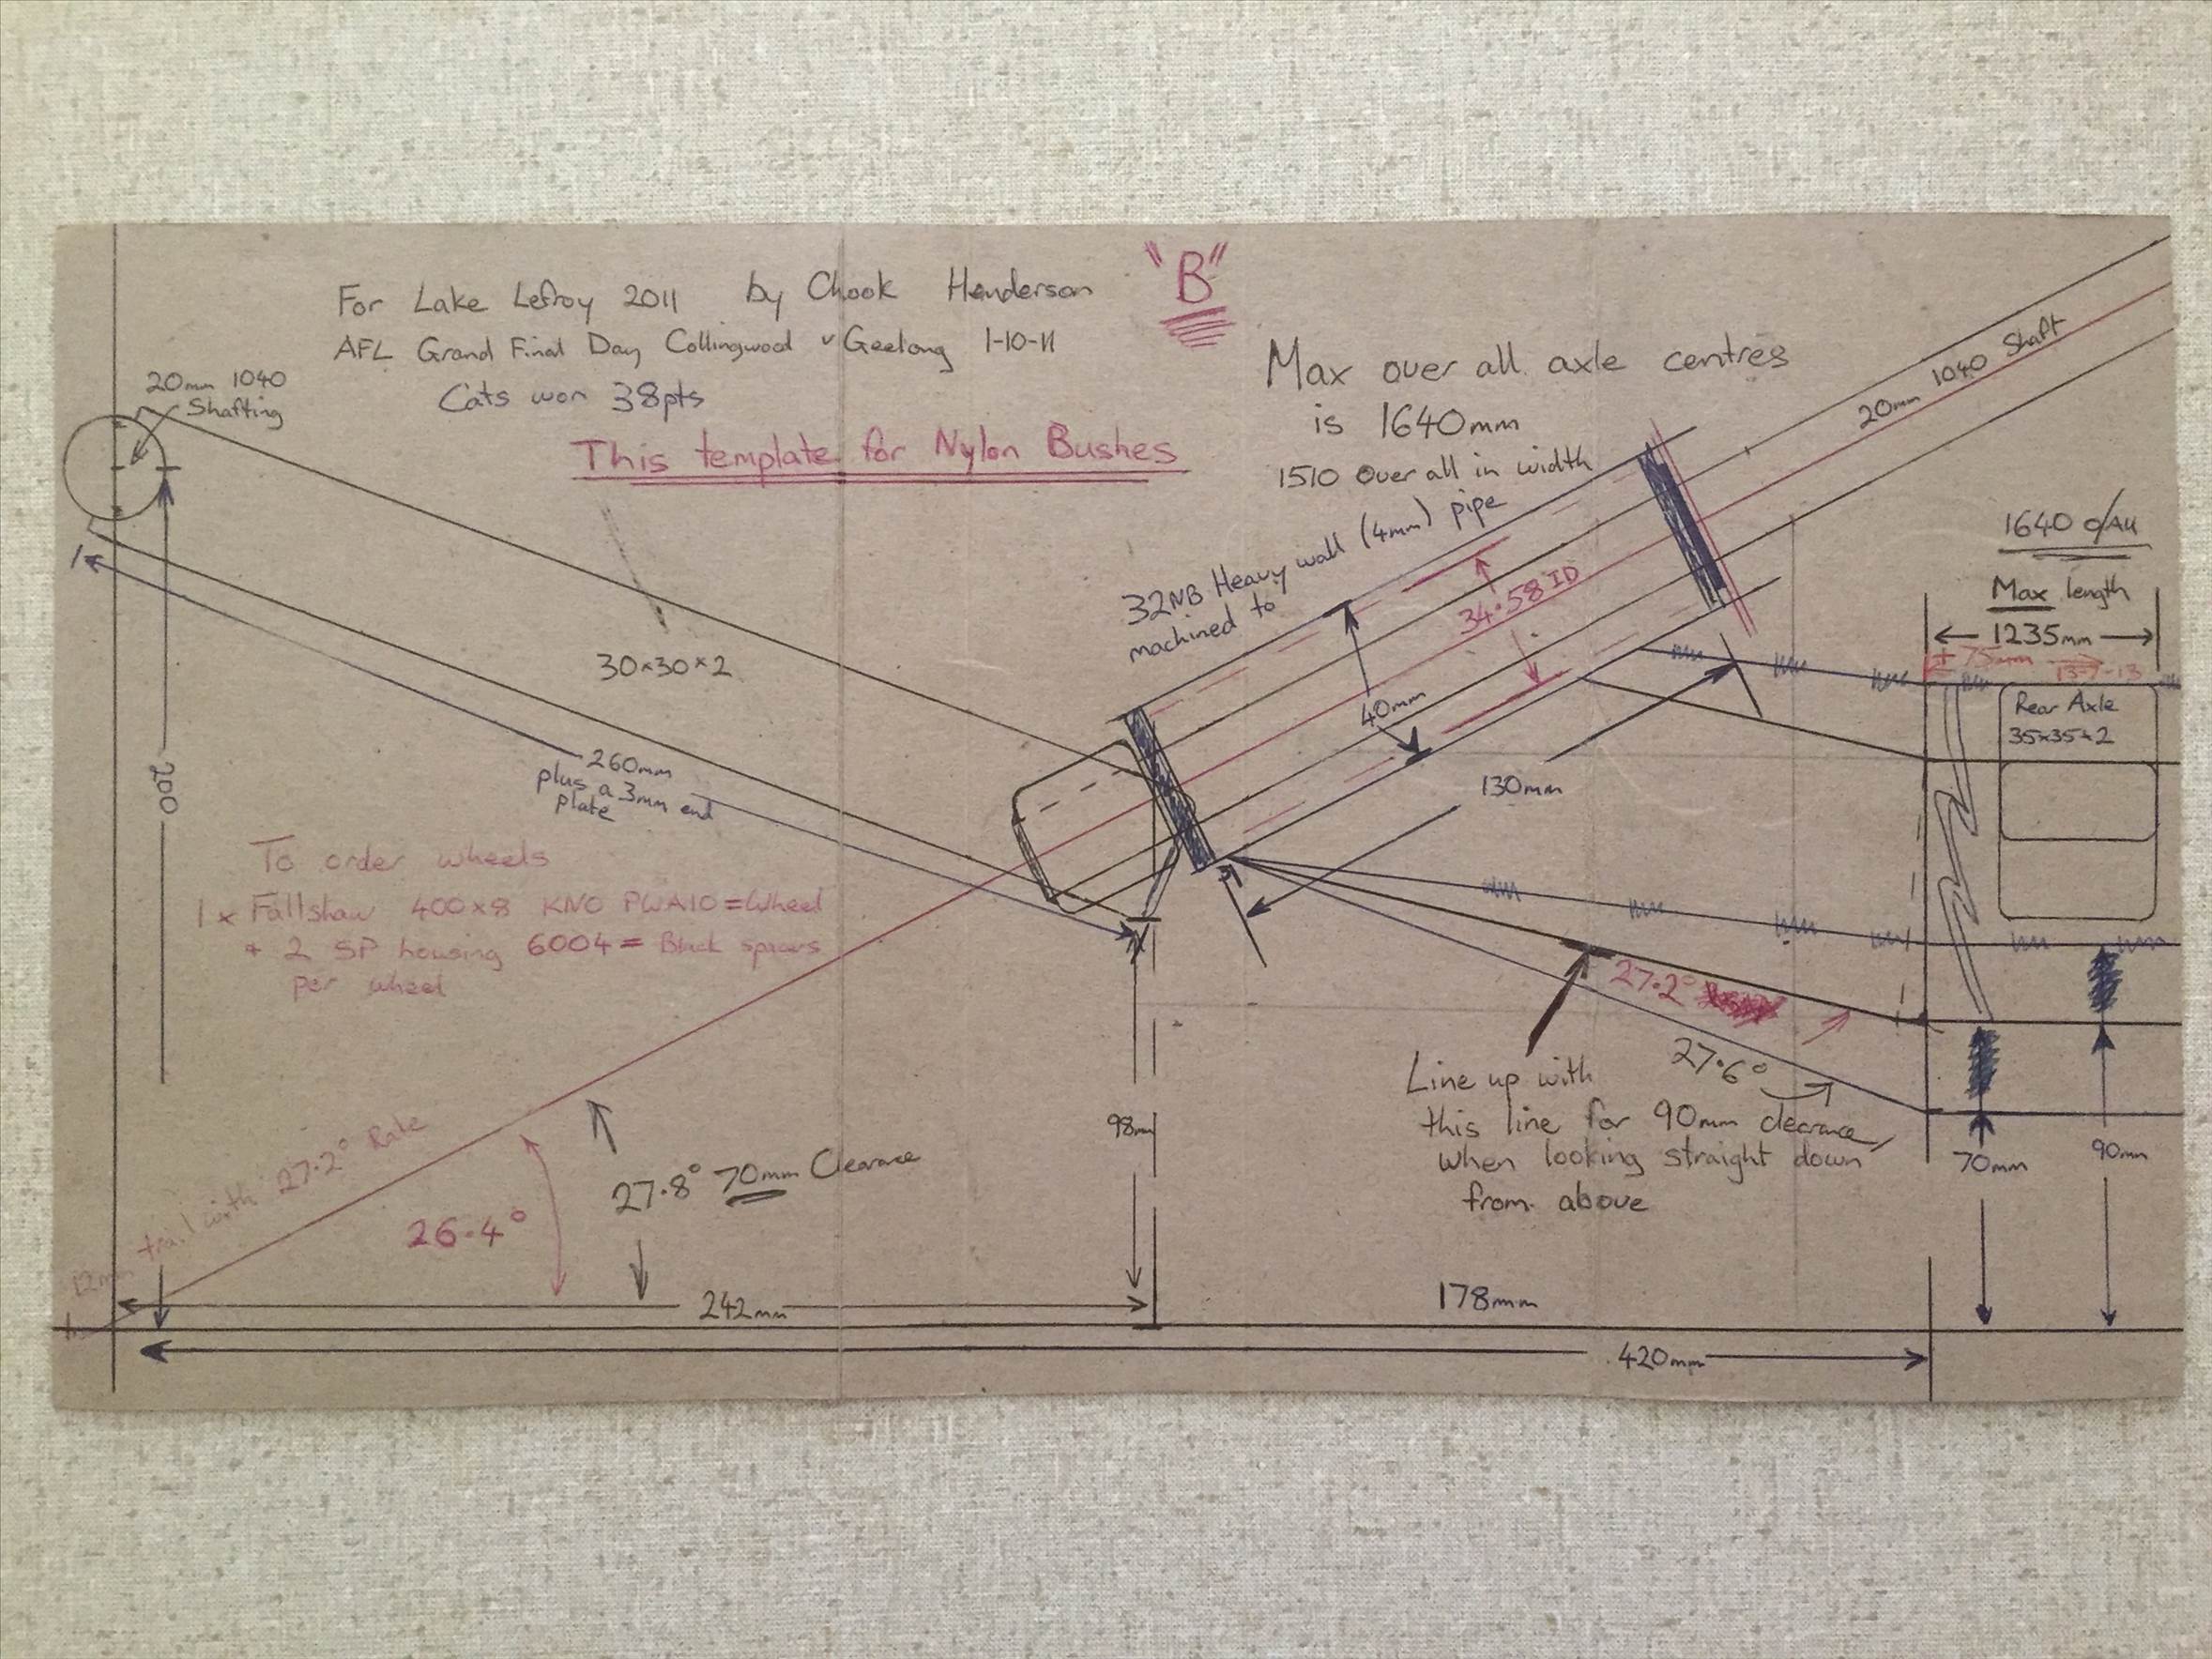 For Lake Lefroy 2011 by Chook Henderson
"B"
AFL Grand Final Day Collingwood v Geelong 1-10-11
Cats won 38pts
This template for Nylon Bushes
20mm 1040
Shafting
Max over all axle centres
is 1640mm
1510 Over all in width
32NB Heavy wall (4mm) pipe
machined to
34.58 ID
40mm
130mm
20mm 1040 Shaft
1640 O/All
Max length
1235mm
+ 75mm
13-7-13
Rear Axle
35×35×2
30×30×2
260mm
plus a 3mm end
plate
200
To order wheels
1 x Fallshaw 400x8 KNO PWA10 = Wheel
+ 2 SP housing 6004 = Black spacers
per wheel
27.2°
27.6°
Line up with
this line for 90mm clearance
when looking straight down
from above
98mm
70mm
90mm
12mm trail with 27.2° Rake
26.4°
27.8° 70mm Clearance
242mm
178mm
420mm